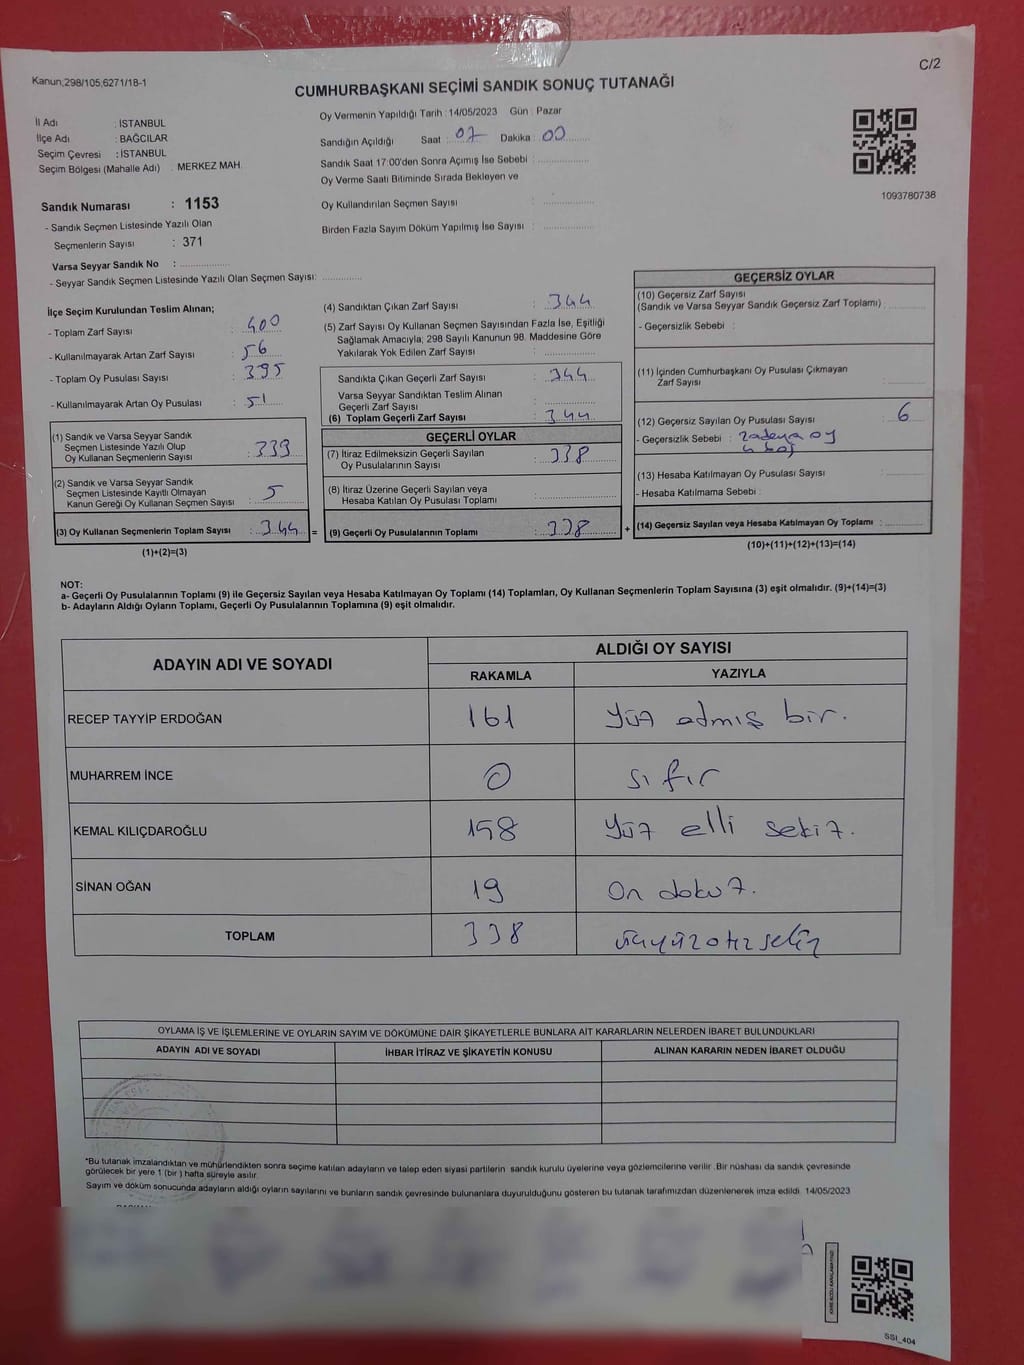 Kanun;298/105;6271/18-1
C/2
CUMHURBAŞKANI SEÇİMİ SANDIK SONUÇ TUTANAĞI
İl Adı : İSTANBUL
İlçe Adı : BAĞCILAR
Seçim Çevresi : İSTANBUL
Seçim Bölgesi (Mahalle Adı) : MERKEZ MAH.
Sandık Numarası : 1153
- Sandık Seçmen Listesinde Yazılı Olan
Seçmenlerin Sayısı : 371
Varsa Seyyar Sandık No :
- Seyyar Sandık Seçmen Listesinde Yazılı Olan Seçmen Sayısı:
Oy Vermenin Yapıldığı Tarih : 14/05/2023 Gün : Pazar
Sandığın Açıldığı Saat : 07 Dakika : 00
Sandık Saat 17:00'den Sonra Açımış İse Sebebi :
Oy Verme Saati Bitiminde Sırada Bekleyen ve
Oy Kullandırılan Seçmen Sayısı :
Birden Fazla Sayım Döküm Yapılmış İse Sayısı :
1093780738
İlçe Seçim Kurulundan Teslim Alınan;
- Toplam Zarf Sayısı : 400
- Kullanılmayarak Artan Zarf Sayısı : 56
- Toplam Oy Pusulası Sayısı : 395
- Kullanılmayarak Artan Oy Pusulası : 51
(1) Sandık ve Varsa Seyyar Sandık
Seçmen Listesinde Yazılı Olup
Oy Kullanan Seçmenlerin Sayısı : 339
(2) Sandık ve Varsa Seyyar Sandık
Seçmen Listesinde Kayıtlı Olmayan
Kanun Gereği Oy Kullanan Seçmen Sayısı : 5
(3) Oy Kullanan Seçmenlerin Toplam Sayısı : 344 =
(1)+(2)=(3)
(4) Sandıktan Çıkan Zarf Sayısı : 344
(5) Zarf Sayısı Oy Kullanan Seçmen Sayısından Fazla İse, Eşitliği
Sağlamak Amacıyla; 298 Sayılı Kanunun 98. Maddesine Göre
Yakılarak Yok Edilen Zarf Sayısı :
Sandıkta Çıkan Geçerli Zarf Sayısı : 344
Varsa Seyyar Sandıktan Teslim Alınan
Geçerli Zarf Sayısı :
(6) Toplam Geçerli Zarf Sayısı : 344
GEÇERLİ OYLAR
(7) İtiraz Edilmeksizin Geçerli Sayılan
Oy Pusulalarının Sayısı : 338
(8) İtiraz Üzerine Geçerli Sayılan veya
Hesaba Katılan Oy Pusulası Toplamı :
(9) Geçerli Oy Pusulalarının Toplamı : 338 +
GEÇERSİZ OYLAR
(10) Geçersiz Zarf Sayısı
(Sandık ve Varsa Seyyar Sandık Geçersiz Zarf Toplamı) :
- Geçersizlik Sebebi :
(11) İçinden Cumhurbaşkanı Oy Pusulası Çıkmayan
Zarf Sayısı :
(12) Geçersiz Sayılan Oy Pusulası Sayısı : 6
- Geçersizlik Sebebi : oy
(13) Hesaba Katılmayan Oy Pusulası Sayısı :
- Hesaba Katılmama Sebebi :
(14) Geçersiz Sayılan veya Hesaba Katılmayan Oy Toplamı :
(10)+(11)+(12)+(13)=(14)
NOT:
a- Geçerli Oy Pusulalarının Toplamı (9) ile Geçersiz Sayılan veya Hesaba Katılmayan Oy Toplamı (14) Toplamları, Oy Kullanan Seçmenlerin Toplam Sayısına (3) eşit olmalıdır. (9)+(14)=(3)
b- Adayların Aldığı Oyların Toplamı, Geçerli Oy Pusulalarının Toplamına (9) eşit olmalıdır.
ADAYIN ADI VE SOYADI
ALDIĞI OY SAYISI
RAKAMLA YAZIYLA
RECEP TAYYİP ERDOĞAN 161 Yüz atmış bir.
MUHARREM İNCE 0 sıfır
KEMAL KILIÇDAROĞLU 158 Yüz elli sekiz.
SİNAN OĞAN 19 On dokuz.
TOPLAM 338 üçyüzotuzsekiz
OYLAMA İŞ VE İŞLEMLERİNE VE OYLARIN SAYIM VE DÖKÜMÜNE DAİR ŞİKAYETLERLE BUNLARA AİT KARARLARIN NELERDEN İBARET BULUNDUKLARI
ADAYIN ADI VE SOYADI İHBAR İTİRAZ VE ŞİKAYETİN KONUSU ALINAN KARARIN NEDEN İBARET OLDUĞU
*Bu tutanak imzalandıktan ve mühürlendikten sonra seçime katılan adayların ve talep eden siyasi partilerin sandık kurulu üyelerine veya gözlemcilerine verilir. Bir nüshası da sandık çevresinde
görülecek bir yere 1 (bir) hafta süreyle asılır.
Sayım ve döküm sonucunda adayların aldığı oyların sayılarını ve bunların sandık çevresinde bulunanlara duyurulduğunu gösteren bu tutanak tarafımızdan düzenlenerek imza edildi. 14/05/2023
SSI_404